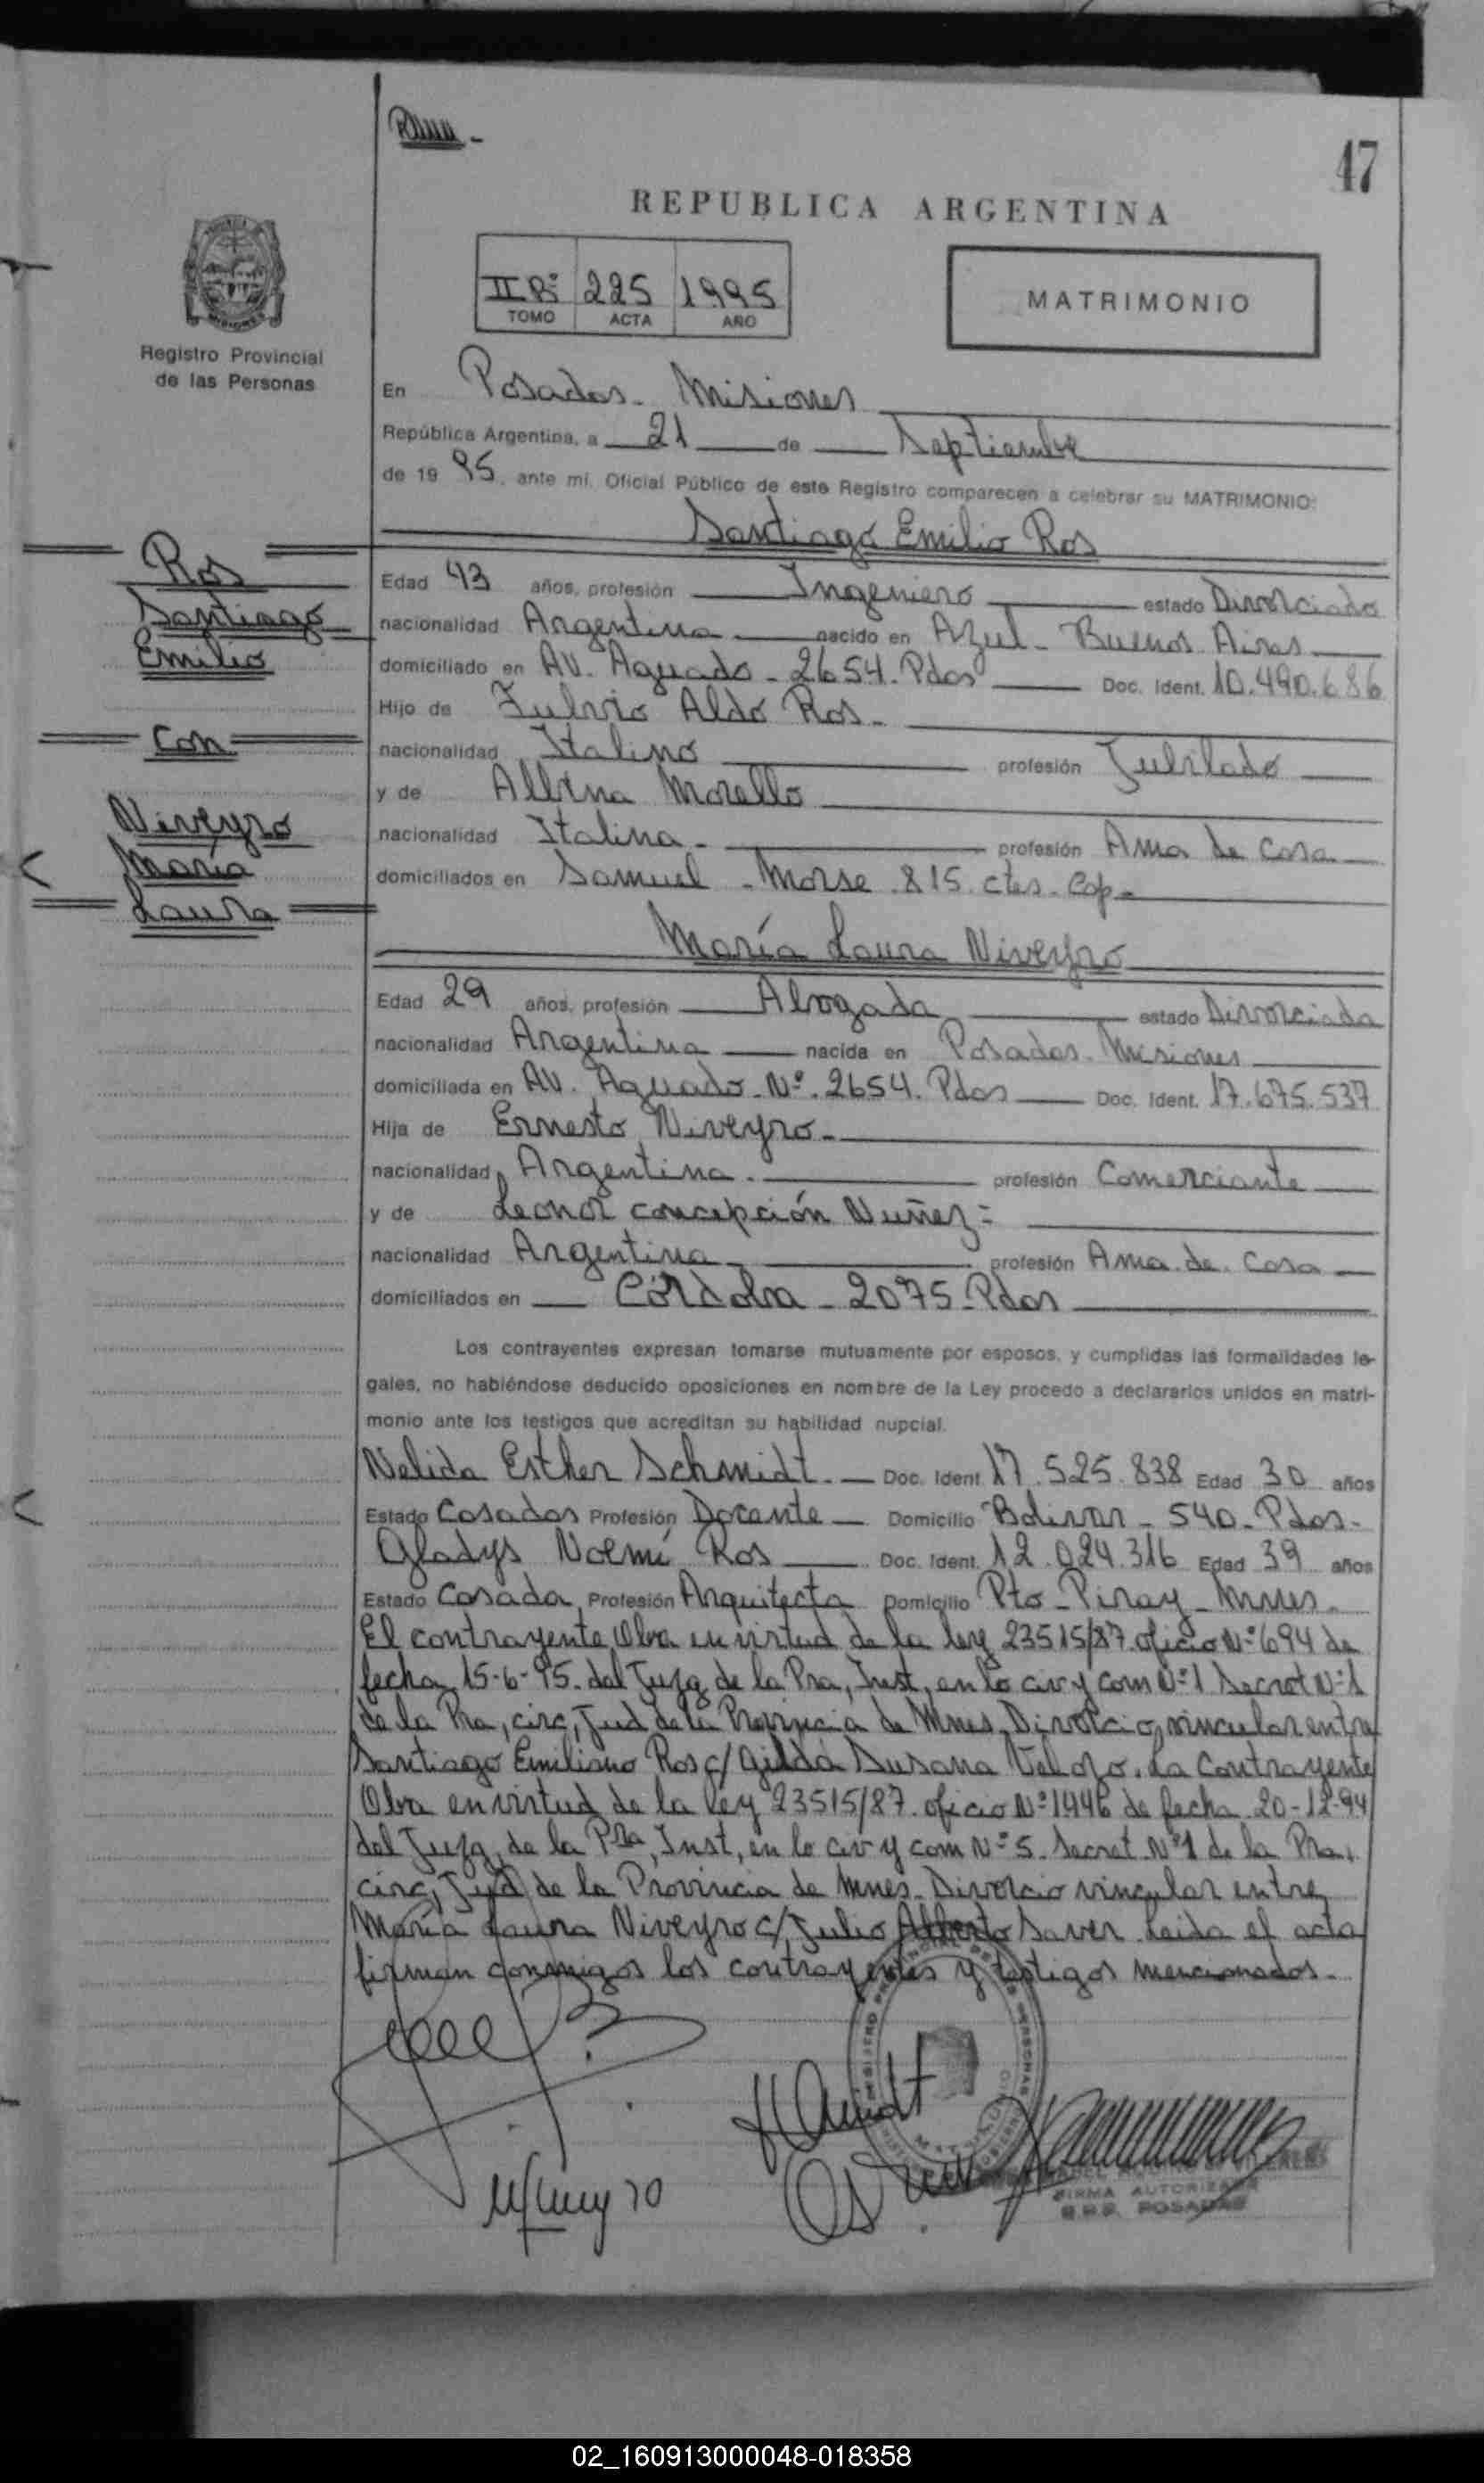 47
REPUBLICA ARGENTINA
II Bº 225 1995
TOMO ACTA AÑO
MATRIMONIO
Registro Provincial
de las Personas
En Posadas - Misiones
República Argentina, a 21 de Septiembre
de 1995, ante mí, Oficial Público de este Registro comparecen a celebrar su MATRIMONIO:
Santiago Emilio Ros
Ros
Santiago
Emilio
Con
Niveyro
María
Laura
Edad 43 años, profesión Ingeniero estado Divorciado
nacionalidad Argentina nacido en Azul - Buenos Aires
domiciliado en AV. Aguado - 2654. Pdas Doc. Ident. 10.490.686
Hijo de Fulvio Aldo Ros -
nacionalidad Italino profesión Jubilado
y de Albina Morello
nacionalidad Italina - profesión Ama de Casa
domiciliados en Samuel - Morse 815 ctes - Cap -
María Laura Niveyro
Edad 29 años, profesión Abogada estado Divorciada
nacionalidad Argentina nacida en Posadas - Misiones
domiciliada en AV. Aguado Nº 2654. Pdas Doc. Ident. 17.675.537
Hija de Ernesto Niveyro -
nacionalidad Argentina - profesión Comerciante
y de Leonor concepción Nuñez =
nacionalidad Argentina profesión Ama de Casa
domiciliados en Córdoba - 2075 - Pdas
Los contrayentes expresan tomarse mutuamente por esposos, y cumplidas las formalidades le-
gales, no habiéndose deducido oposiciones en nombre de la Ley procedo a declararlos unidos en matri-
monio ante los testigos que acreditan su habilidad nupcial.
Nelida Esther Schmidt - Doc. Ident. 17.525.838 Edad 30 años
Estado Casados Profesión Docente Domicilio Bolivar - 540 - Pdas -
Gladys Noemí Ros Doc. Ident. 12.024.316 Edad 39 años
Estado Casada Profesión Arquitecta Domicilio Pto - Piray - Mnes -
El contrayente Obra en virtud de la ley 23515/87. oficio Nº 694 de
fecha 15-6-95. del Juzg de la Pra, Inst, en lo civ y com Nº 1 Secret Nº 1
de la Pra, circ, Jud de la Provincia de Mnes. Divorcio vincular entre
Santiago Emiliano Ros c/ Gilda Susana Velozo. La Contrayente
Obra en virtud de la ley 23515/87. oficio Nº 1446 de fecha 20-12-94
del Juzg, de la Pra, Inst, en lo civ y com Nº 5. Secret Nº 1 de la Pra,
circ, Jud de la Provincia de Mnes. Divorcio vincular entre
María Laura Niveyro c/ Julio Alberto Saver leida el acta
firman conmigos los contrayentes y testigos mencionados -
FIRMA AUTORIZADA
POSADAS
02_160913000048-018358